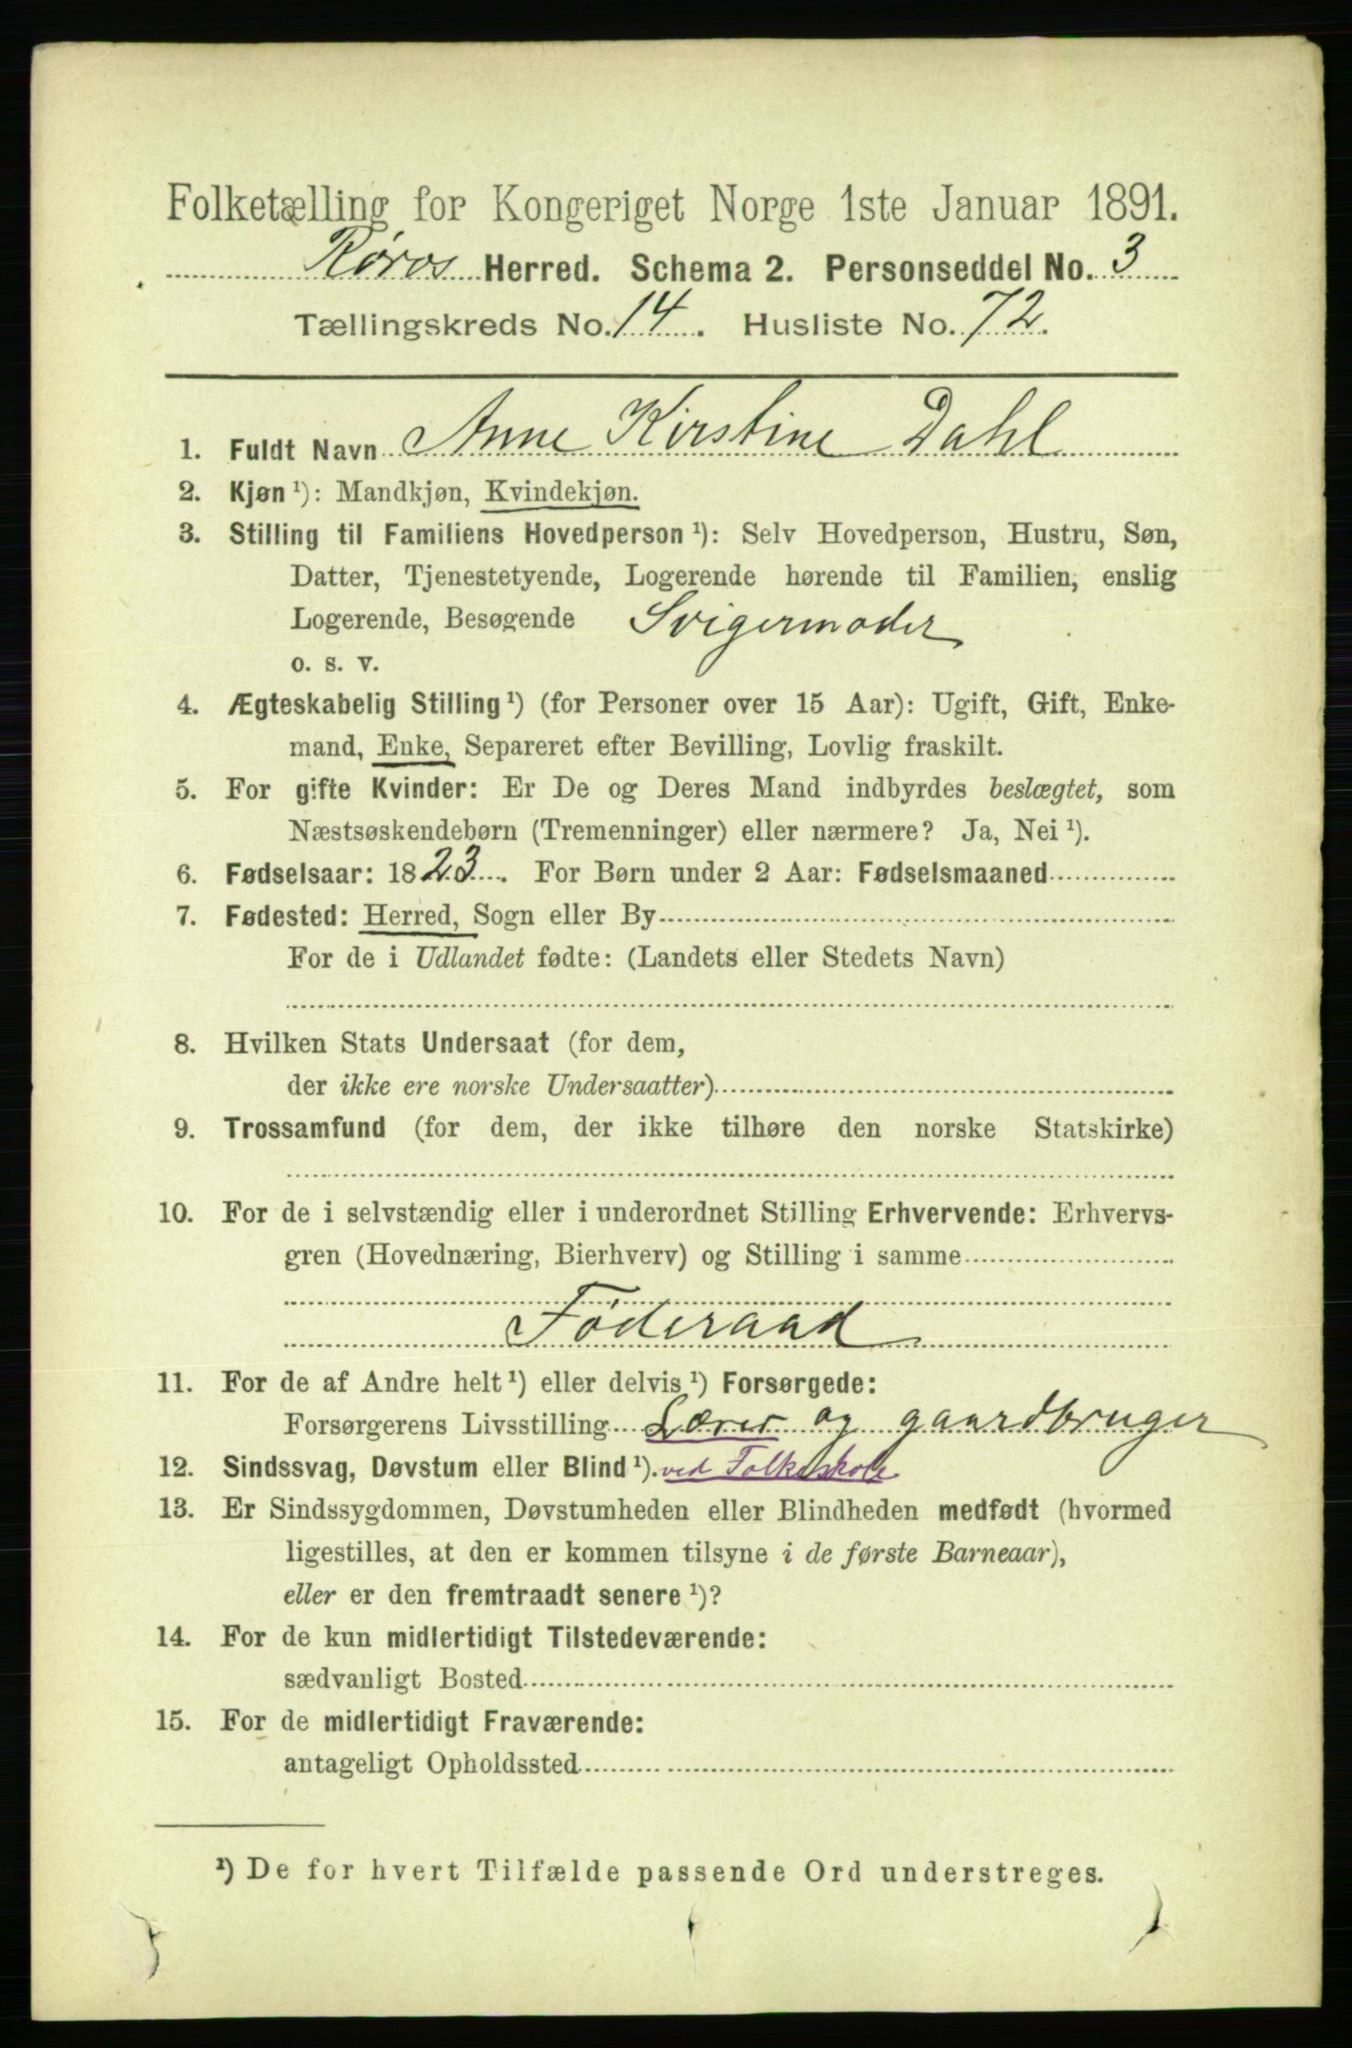 Folketælling for Kongeriget Norge 1ste Januar 1891.
Røros Herred. Schema 2. Personseddel No. 3
Tællingskreds No. 14. Husliste No. 72.
1. Fuldt Navn Anne Kirstine Dahl
2. Kjøn ¹): Mandkjøn, Kvindekjøn.
3. Stilling til Familiens Hovedperson ¹): Selv Hovedperson, Hustru, Søn,
Datter, Tjenestetyende, Logerende hørende til Familien, enslig
Logerende, Besøgende Svigermoder
o. s. v.
4. Ægteskabelig Stilling ¹) (for Personer over 15 Aar): Ugift, Gift, Enke-
mand, Enke, Separeret efter Bevilling, Lovlig fraskilt.
5. For gifte Kvinder: Er De og Deres Mand indbyrdes beslægtet, som
Næstsøskendebørn (Tremenninger) eller nærmere? Ja, Nei ¹).
6. Fødselsaar: 1823. For Børn under 2 Aar: Fødselsmaaned
7. Fødested: Herred, Sogn eller By
For de i Udlandet fødte: (Landets eller Stedets Navn)
8. Hvilken Stats Undersaat (for dem,
der ikke ere norske Undersaatter)
9. Trossamfund (for dem, der ikke tilhøre den norske Statskirke)
10. For de i selvstændig eller i underordnet Stilling Erhvervende: Erhvervs-
gren (Hovednæring, Bierhverv) og Stilling i samme
Føderaad
11. For de af Andre helt ¹) eller delvis ¹) Forsørgede:
Forsørgerens Livsstilling Lærer og gaardbruger
12. Sindssvag, Døvstum eller Blind ¹). ved Folkeskole
13. Er Sindssygdommen, Døvstumheden eller Blindheden medfødt (hvormed
ligestilles, at den er kommen tilsyne i de første Barneaar),
eller er den fremtraadt senere ¹)?
14. For de kun midlertidigt Tilstedeværende:
sædvanligt Bosted
15. For de midlertidigt Fraværende:
antageligt Opholdssted
¹) De for hvert Tilfælde passende Ord understreges.